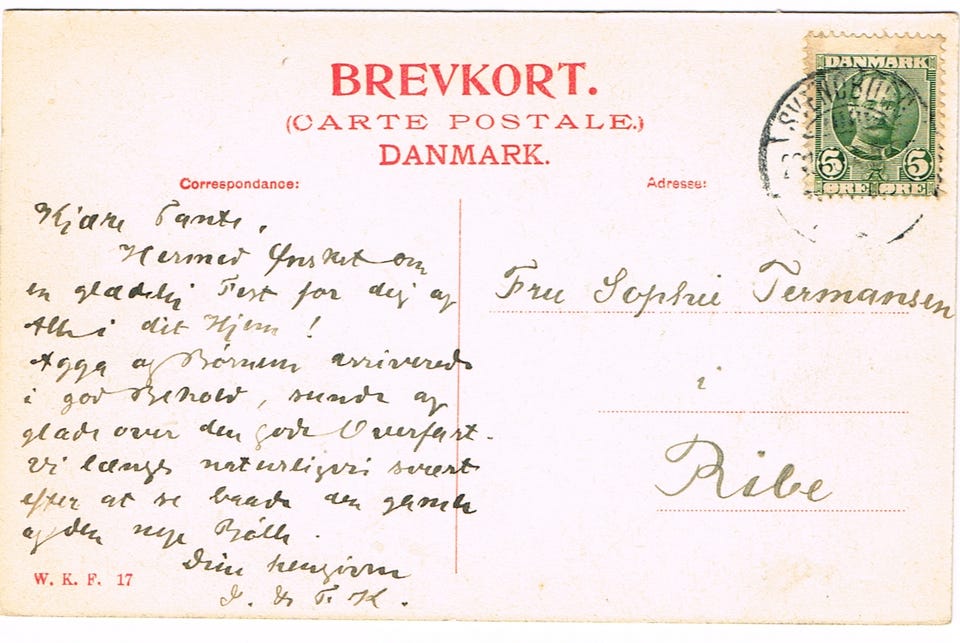 BREVKORT.
(CARTE POSTALE.)
DANMARK.
Correspondance:
Adresse:
DANMARK
5 5
ØRE ØRE
SVENDBORG
Kjære Tante,
Hermed Ønsket om
en glædelig Fest for dig og
Alle i dit Hjem!
Agga og Børnene arriverede
i god Behold, sunde og
glade over den gode Overfart.
Vi længes naturligvis svært
efter at se baade den gamle
og den nye Bølle.
Din hengivne
J. & F. K.
Fru Sophie Termansen
i
Ribe
W. K. F. 17